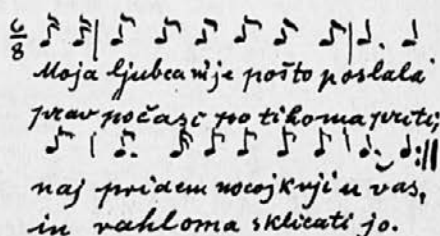 6/8
Moja ljubca mi je pošto poslala
prav počasi po tihoma priti;
naj pridem nocoj k nji u vas,
in rahloma sklicati jo.